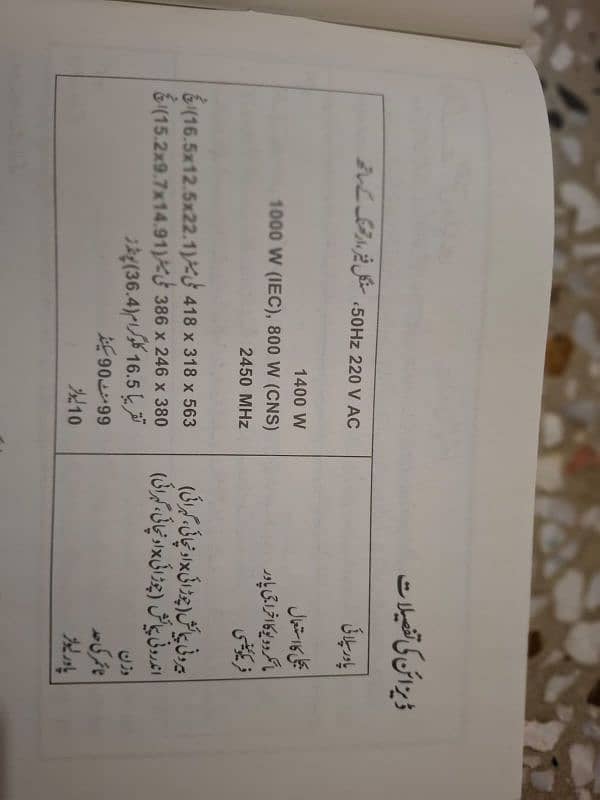 ڈیزائن کی تفصیلات
پاور سپلائی
220 V AC 50Hz، سنگل فیز، ارتھنگ کے ساتھ
بجلی کا استعمال
1400 W
مائکروویو کا اخراجی پاور
1000 W (IEC), 800 W (CNS)
فریکوئنسی
2450 MHz
بیرونی پیمائش (چوڑائی x اونچائی x گہرائی)
418 x 318 x 563 ملی میٹر (16.5x12.5x22.1) انچ
اندرونی پیمائش (چوڑائی x اونچائی x گہرائی)
386 x 246 x 380 ملی میٹر (15.2x9.7x14.91) انچ
وزن
تقریباً 16.5 کلوگرام (36.4) پونڈز
ٹائمر کی حد
99 منٹ 90 سیکنڈ
پاور لیولز
10 لیولز